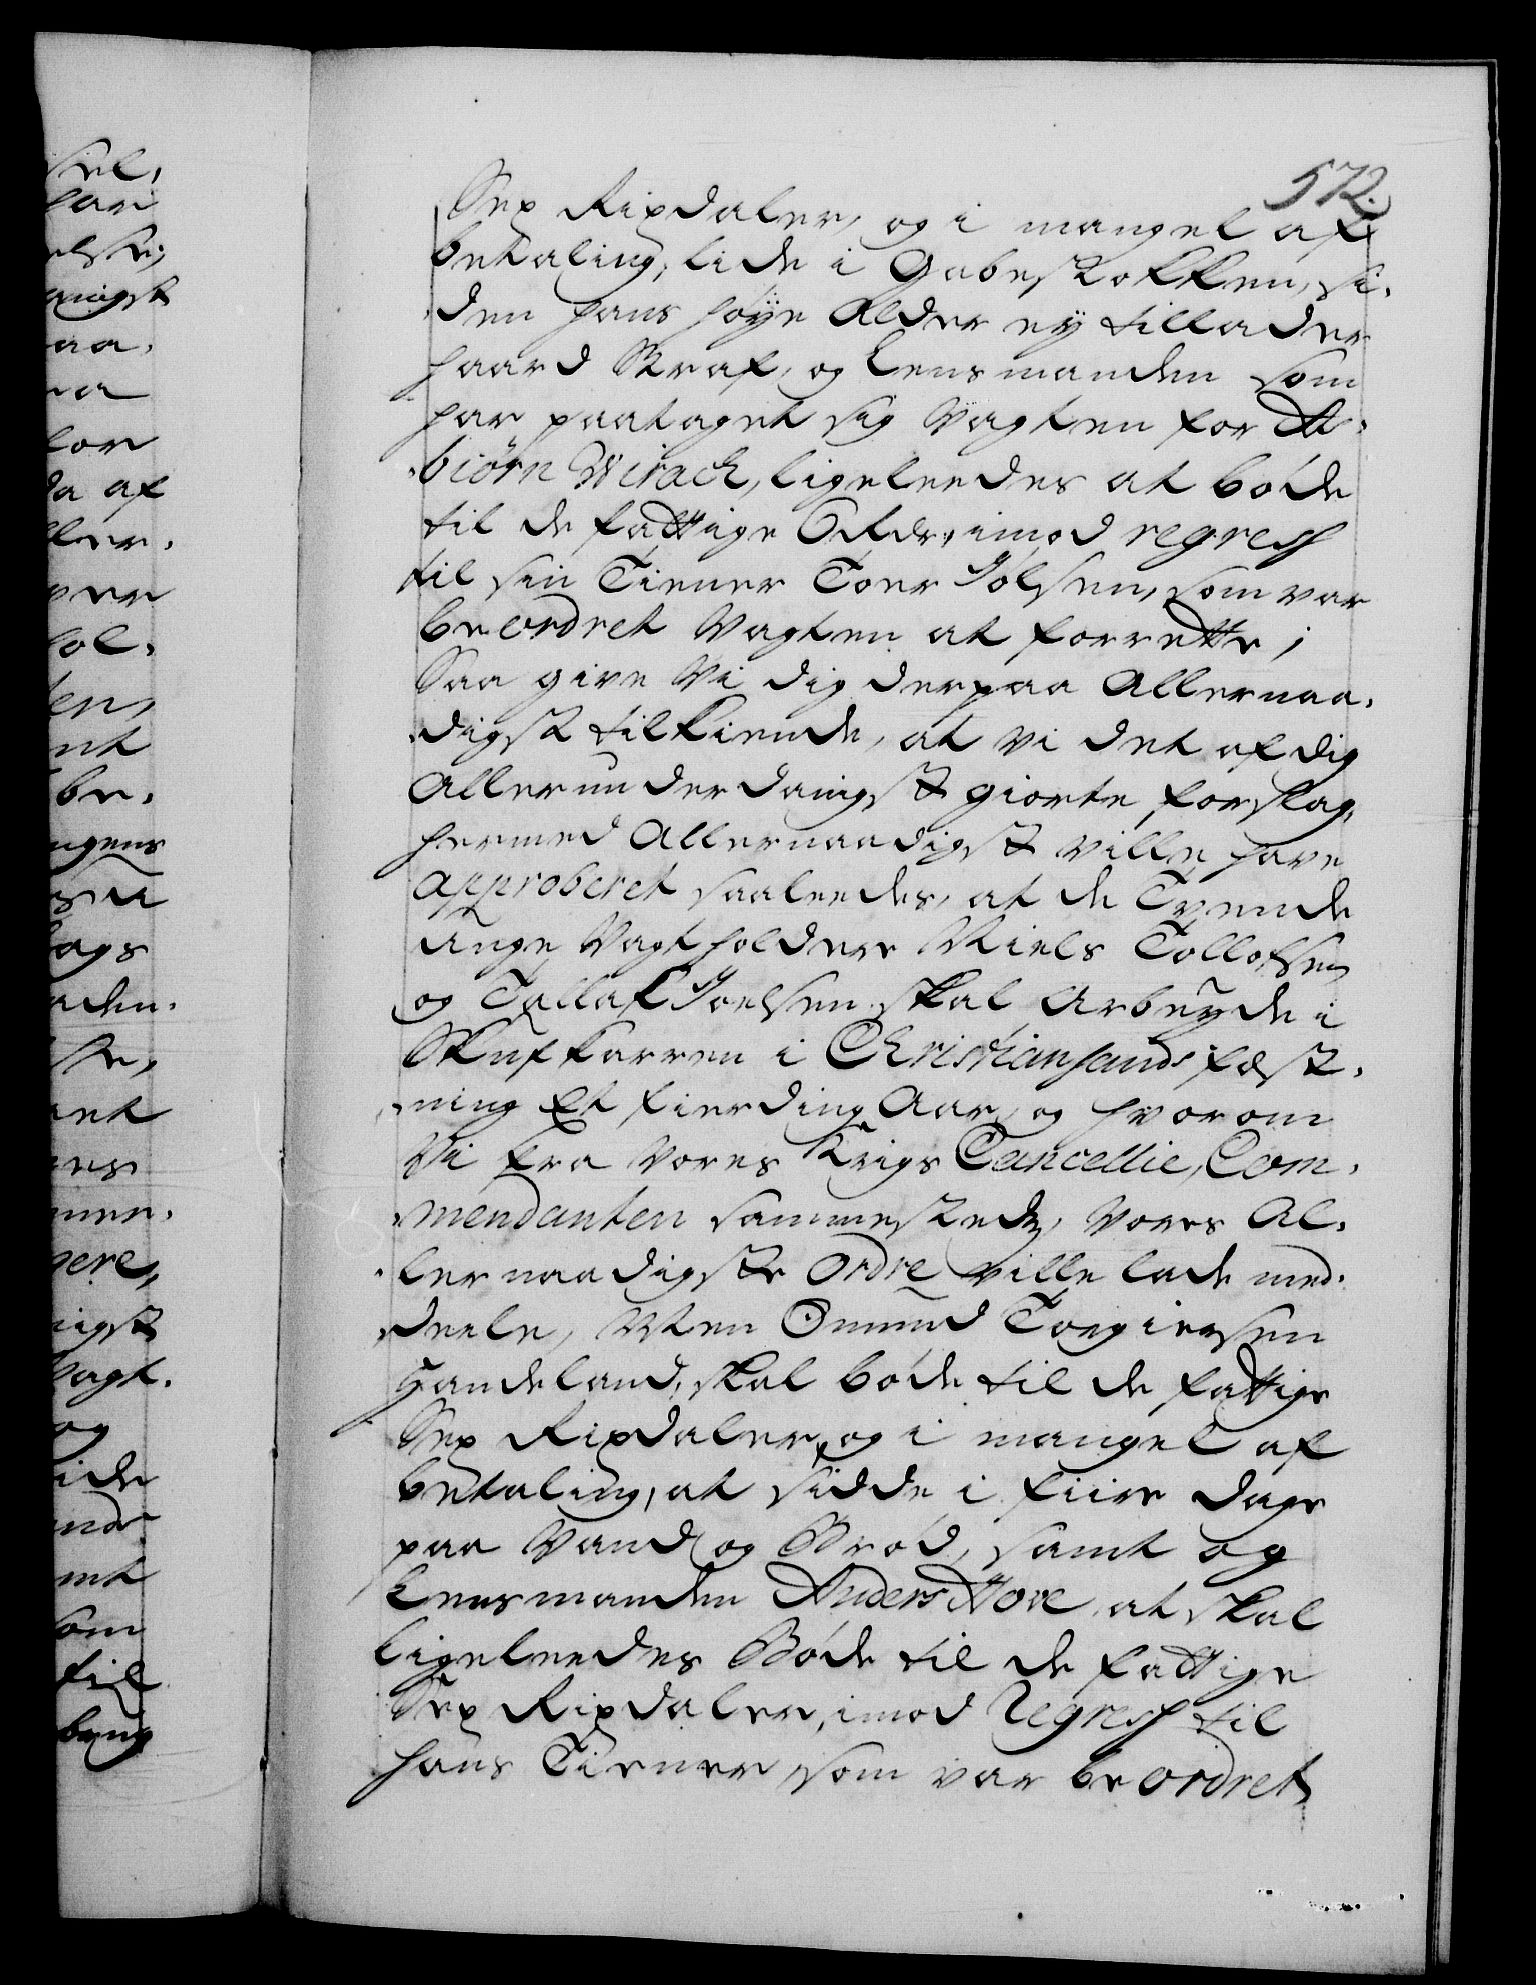 572.
Sex Rixdaler, og i mangel af
betaling, lide i Gabestokken, si-
den hans høye Alder ey tillader
haard Straf, og Lensmanden som
har paataget sig Vagten for At-
biørn Wirach, ligeleedes at bøde
til de fattige 6 Rdr, imod regress
til sin Tiener Toer Jolsen, som var
beordret Vagten at forrette;
Saa give Vi dig derpaa Allernaa-
digst tilkiende, at vi det af dig
Allerunderdanigst giorte forslag,
hermed Allernaadigst ville have
approberet saaleedes, at de Tvende
unge Vagtholdere Niels Tollofsen
og Tallaf Joelsen skal Arbeyde i
Skufkarren i Christiansands fæst-
ning Et fierding Aar, og hvorom
Vi fra Vores Krigs Cancellie, Com-
mendanten sammesteds, Vores Al-
lernaadigste Ordre ville lade med-
deele, Men Omund Torgiersen
Handeland, skal bøde til de fattige
Sex Rixdaler, og i mangel af
betaling, at sidde i fiire dage
paa Vand og Brød, samt og
Lensmanden Anders Hove, at skal
ligeleedes Bøde til de fattige
Sex Rixdaler, imod Regress til
hans Tiener, som var beordret